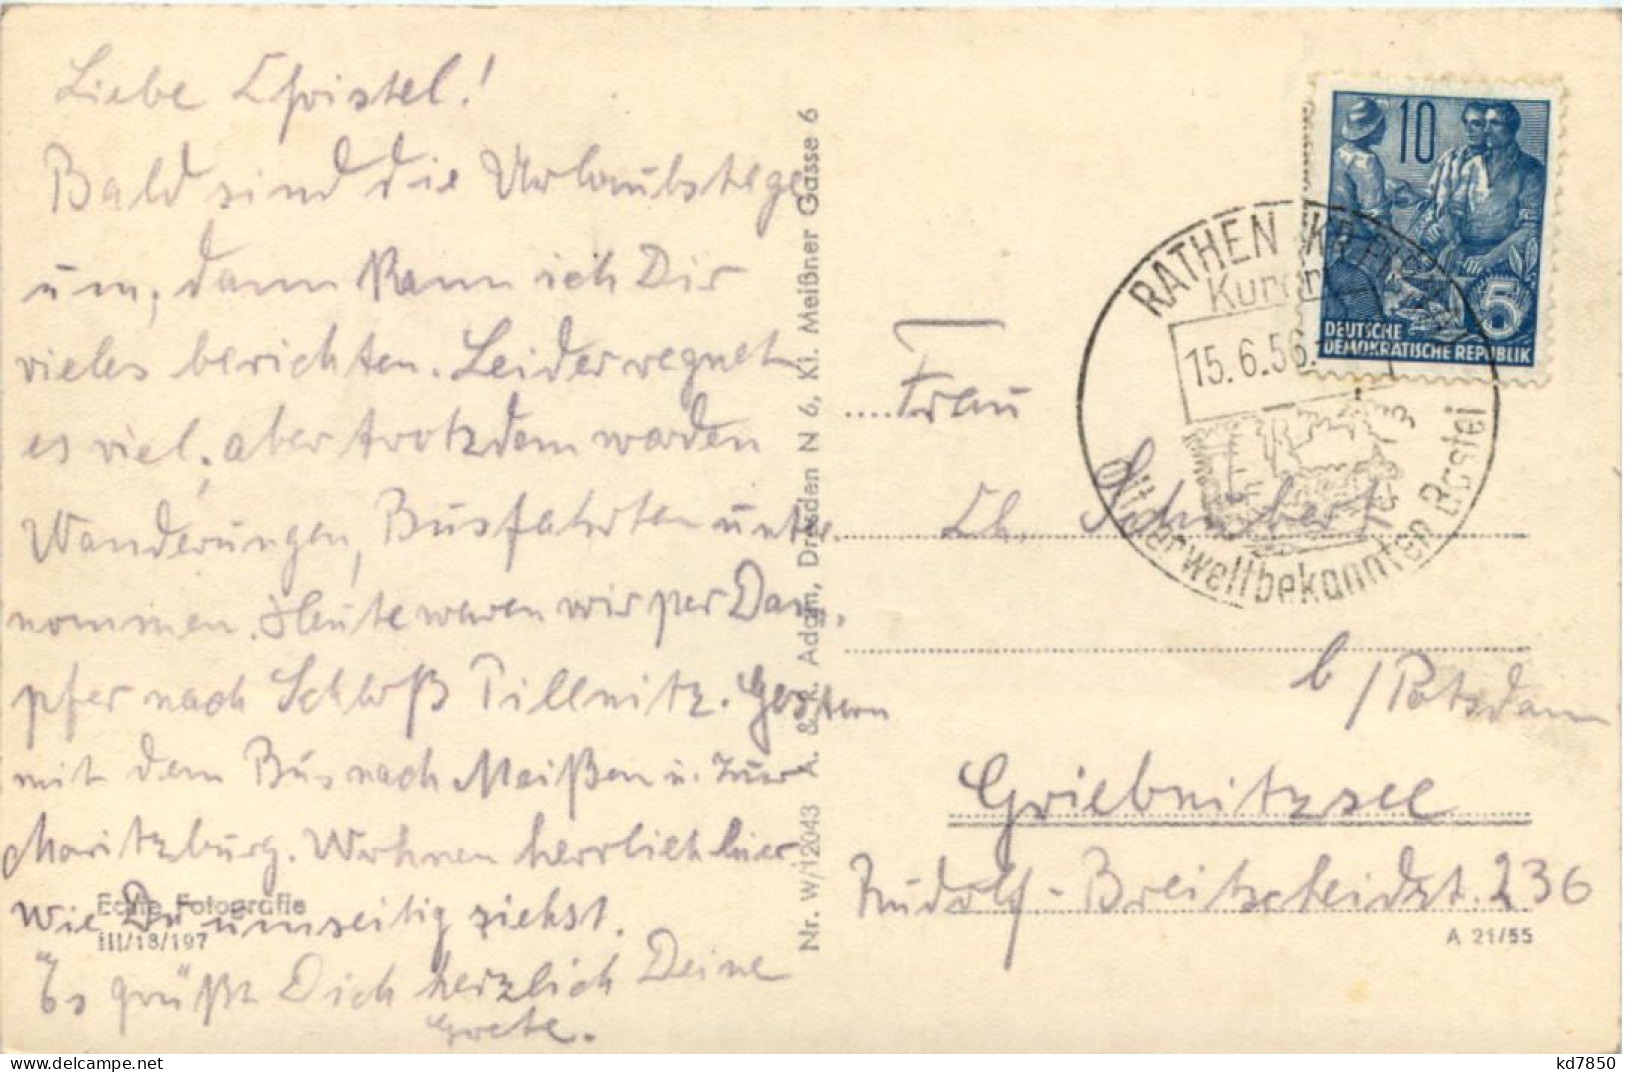 Liebe Christel!
Bald sind die Urlaubstage
um, dann kann ich Dir
vieles berichten. Leider regnet
es viel, aber trotzdem werden
Wanderungen, Busfahrten unter-
nommen. Heute waren wir per Dam,
pfer nach Schloß Pillnitz. Gestern
mit dem Bus nach Meißen u. zur
Moritzburg. Wohnen herrlich hier
wie Du umseitig siehst.
Es grüßt Dich herzlich Deine
Grete.
Echte Fotografie
III/18/197
Nr. W/12043 A. & R. Adam, Dresden N 6, Kl. Meißner Gasse 6
10
5
DEUTSCHE
DEMOKRATISCHE REPUBLIK
RATHEN KR. PIRNA
Kurort
15.6.56.
mit der weltbekannten Bastei
Frau
Ch. Schubert
b/Potsdam
Griebnitzsee
Rudolf-Breitscheidst. 236
A 21/55
www.delcampe.net
kd7850